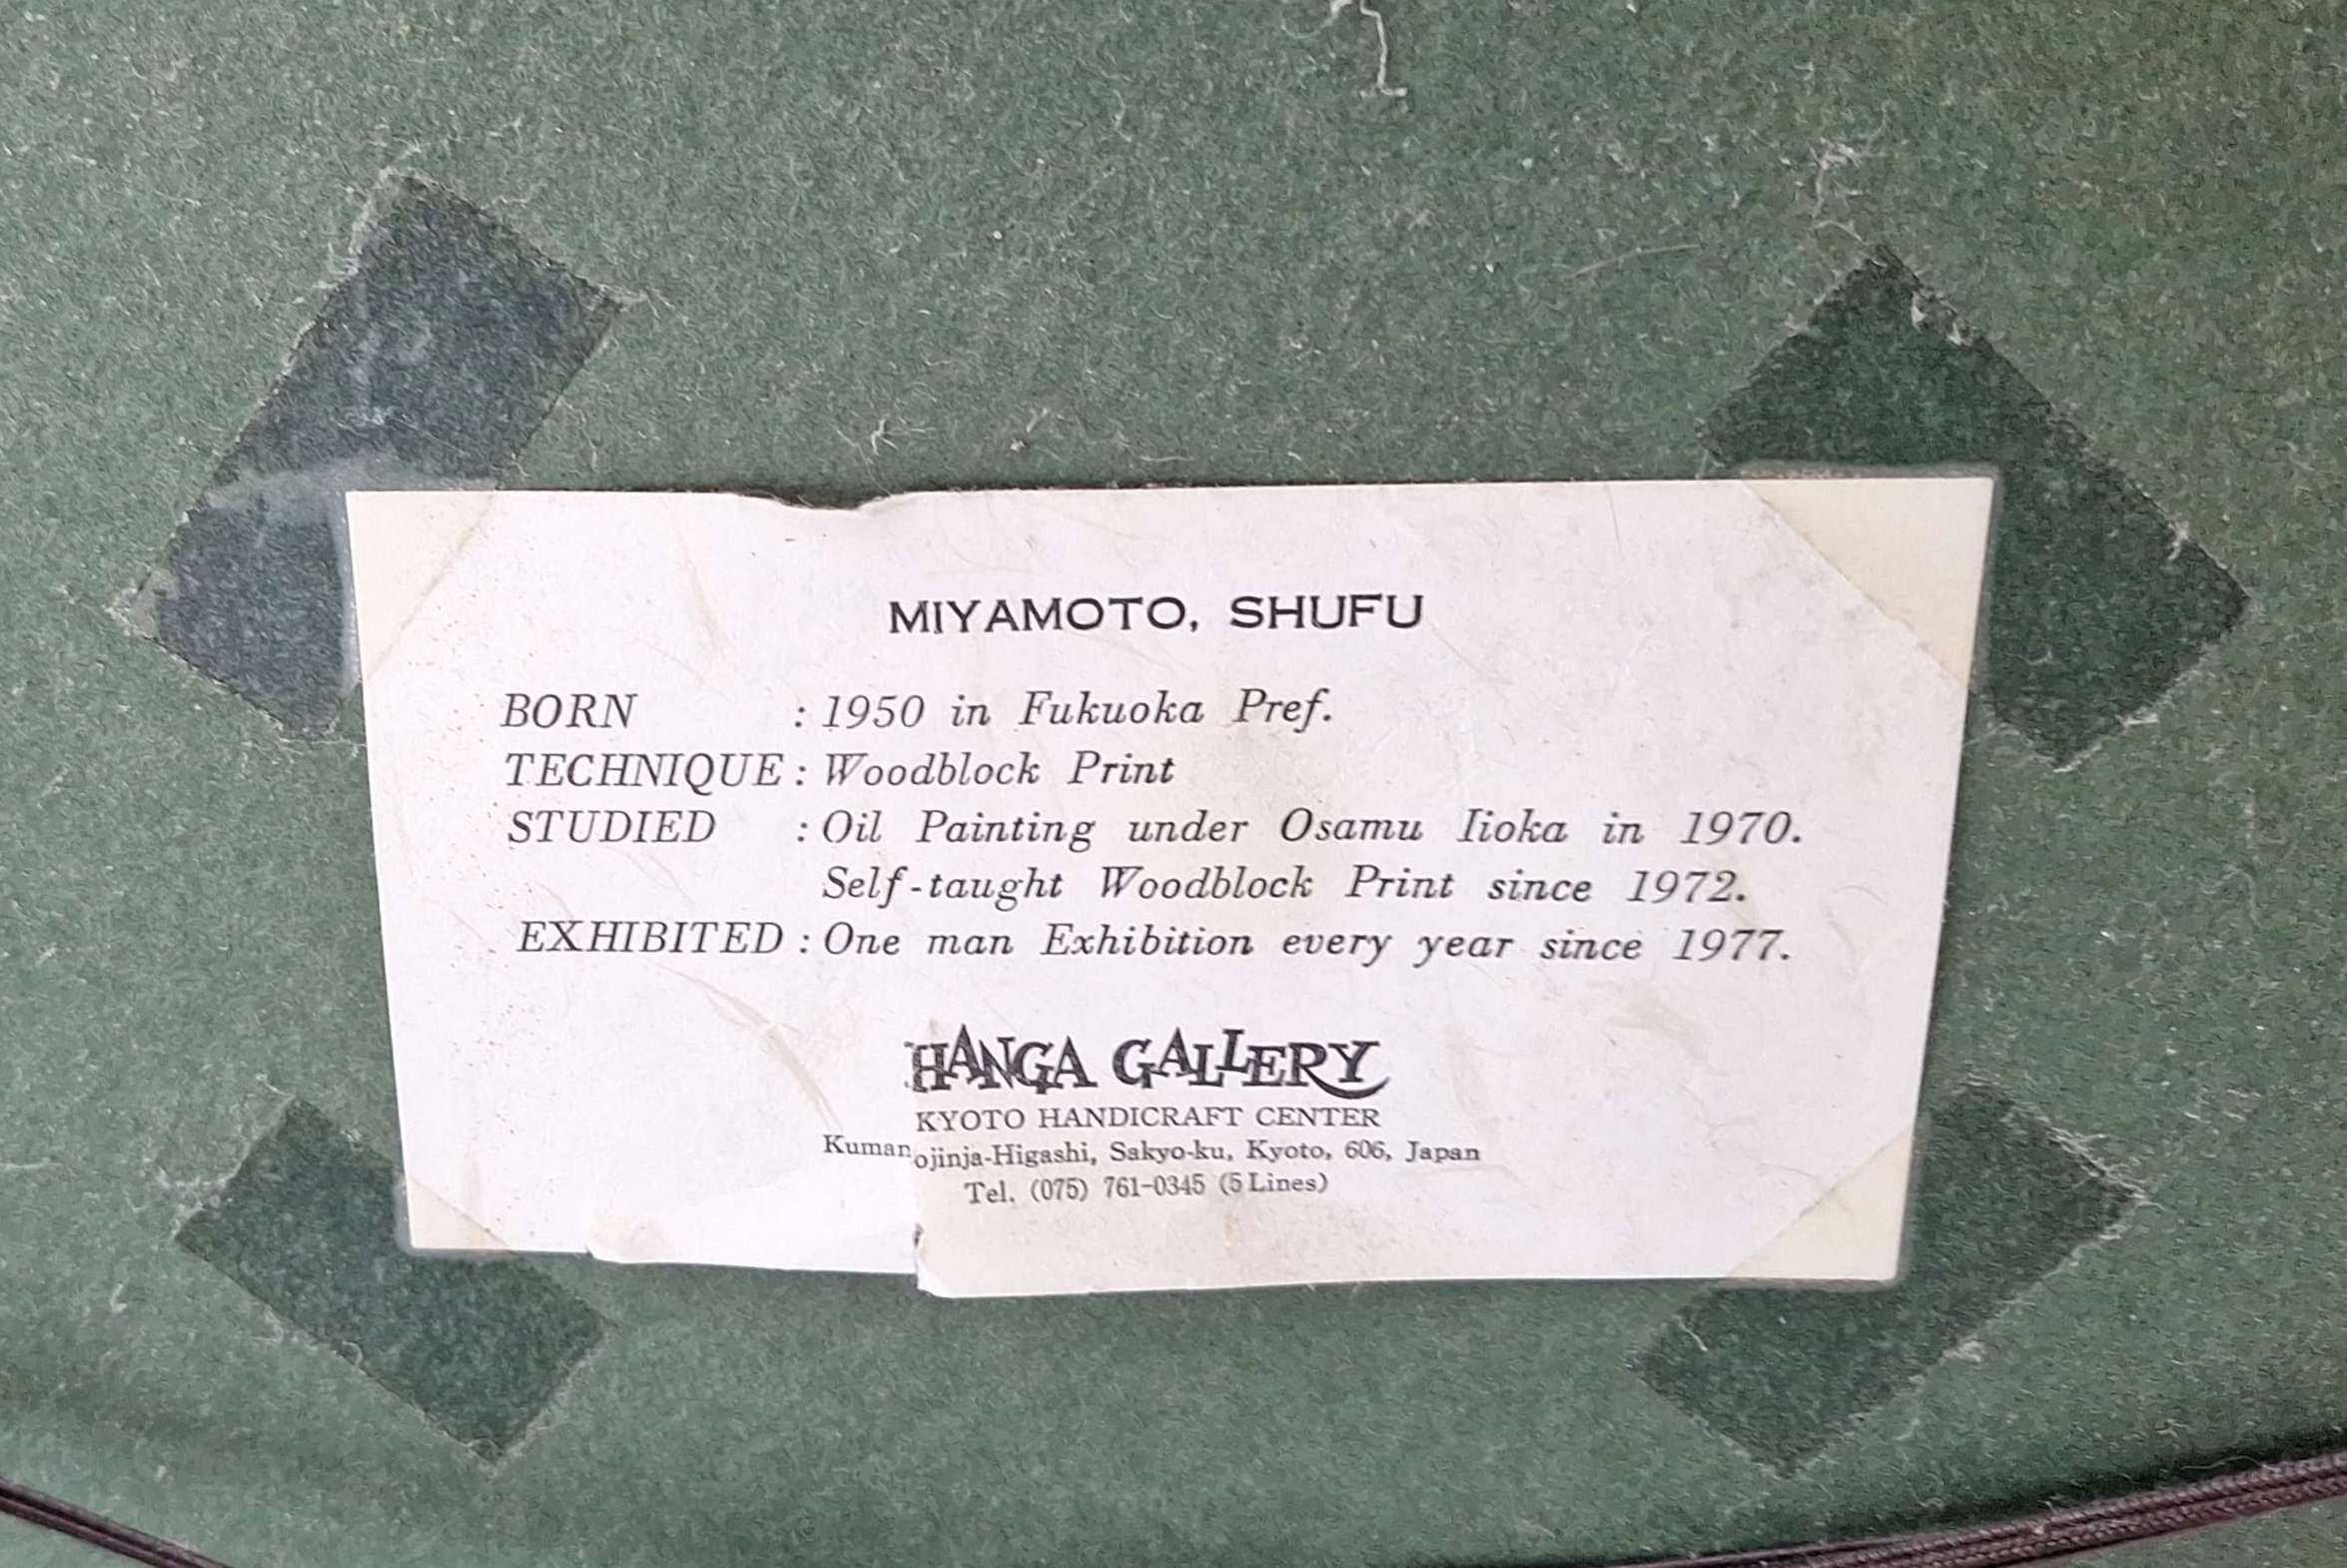 MIYAMOTO, SHUFU
BORN : 1950 in Fukuoka Pref.
TECHNIQUE : Woodblock Print
STUDIED : Oil Painting under Osamu Iioka in 1970.
Self-taught Woodblock Print since 1972.
EXHIBITED : One man Exhibition every year since 1977.
HANGA GALLERY
KYOTO HANDICRAFT CENTER
Kumanojinja-Higashi, Sakyo-ku, Kyoto, 606, Japan
Tel. (075) 761-0345 (5 Lines)